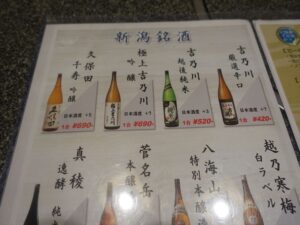 新潟銘酒
吉乃川
厳選辛口
日本酒度 +7
1合 ¥420-
吉乃川
越後純米
日本酒度 +3
1合 ¥520-
極上吉乃川
吟醸
日本酒度 +7
1合 ¥690-
久保田
千寿 吟醸
日本酒度 +5
1合 ¥690-
越乃寒梅
白ラベル
八海山
特別本醸造
菅名岳
本醸
真稜
逸酵 純